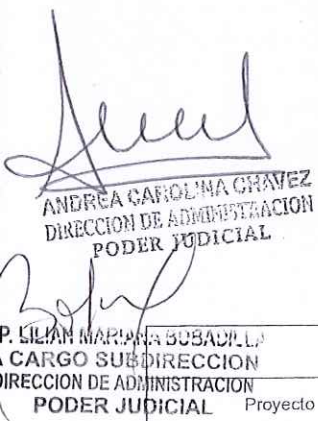 ANDREA CAROLINA CHAVEZ
DIRECCION DE ADMINISTRACION
PODER JUDICIAL
P. LILIAN MARIANA BOBADILLA
A CARGO SUBDIRECCION
DIRECCION DE ADMINISTRACION
PODER JUDICIAL
Proyecto